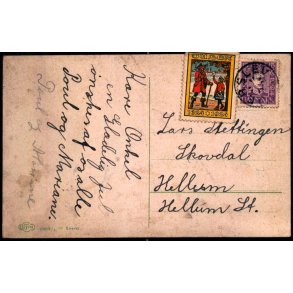 Kære Onkel
en Glædelig Jul
ønskes af os alle
Poul og Mariane.
Poul og Mariane
Lars Stettingen
Skovdal
Hellum
Hellum St.